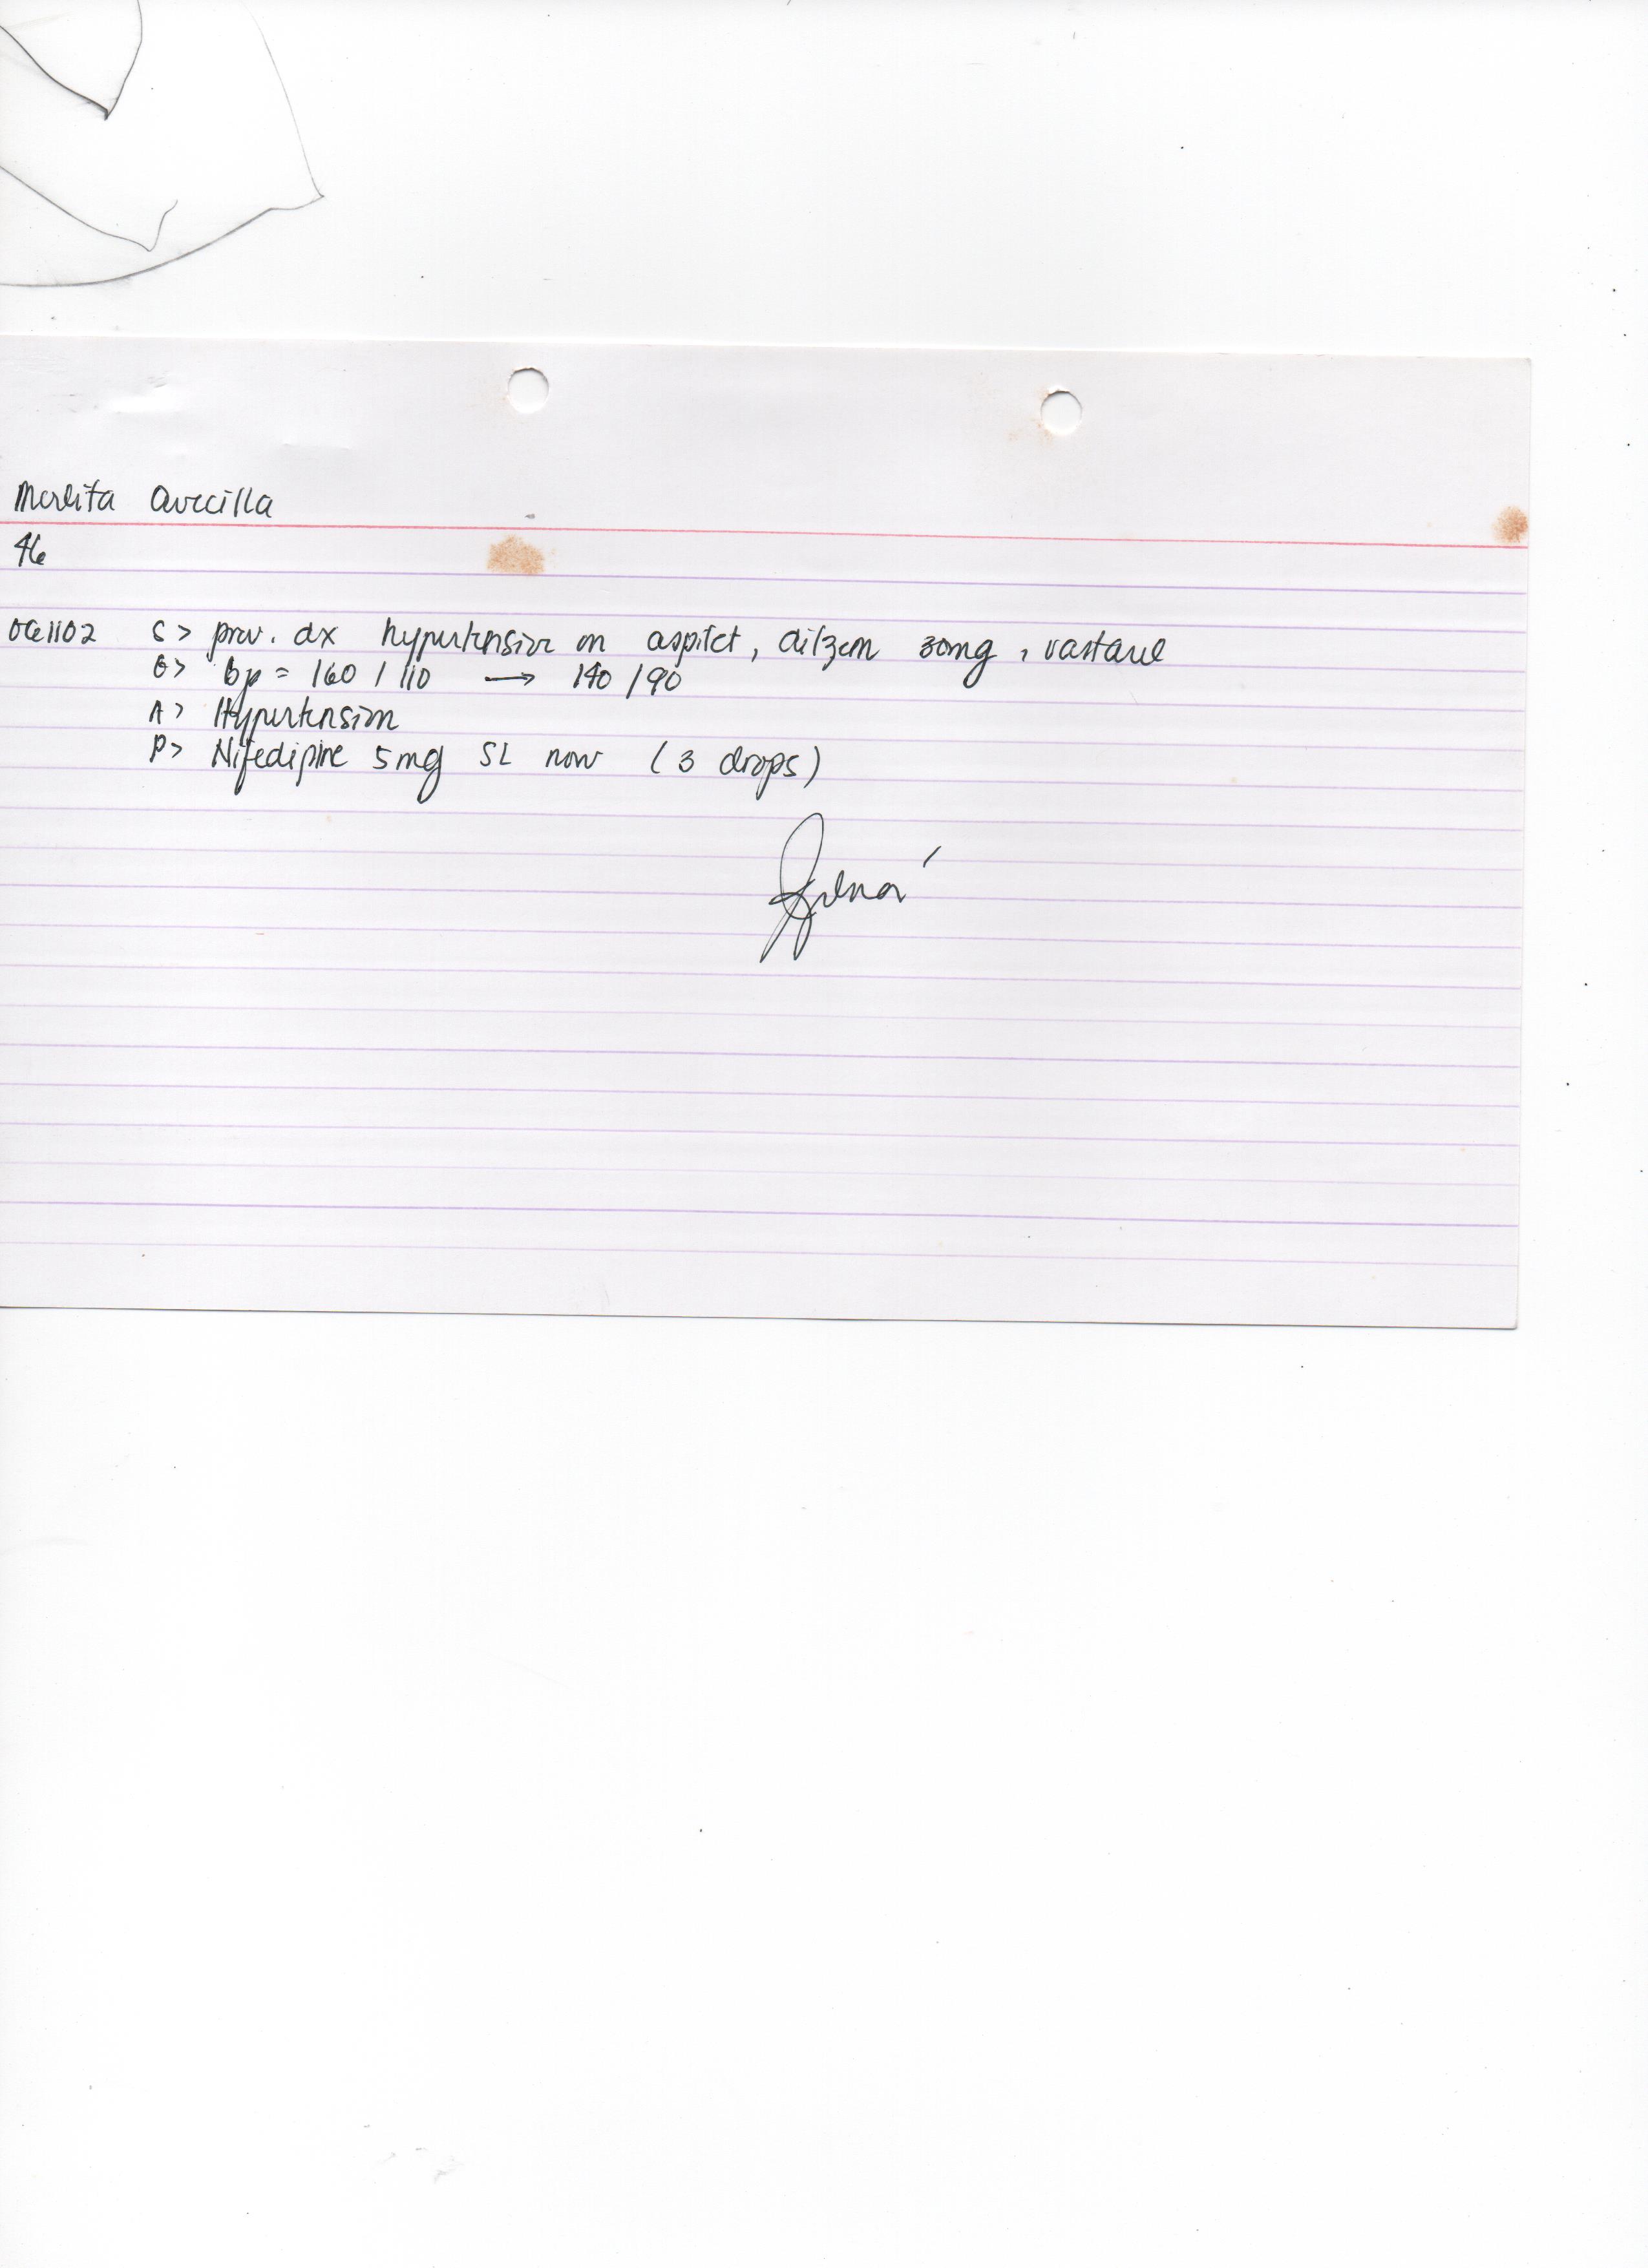 Merlita Avecilla
46
061102 S> prev. dx hypertensive on aspilet, dilzem 30mg, vastarel
O> bp = 160 / 110 → 140 / 90
A> Hypertension
P> Nifedipine 5mg SL now (3 drops)